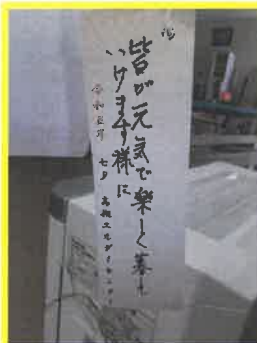 皆が元気で楽しく暮し
いけます様に
令和五年 七夕